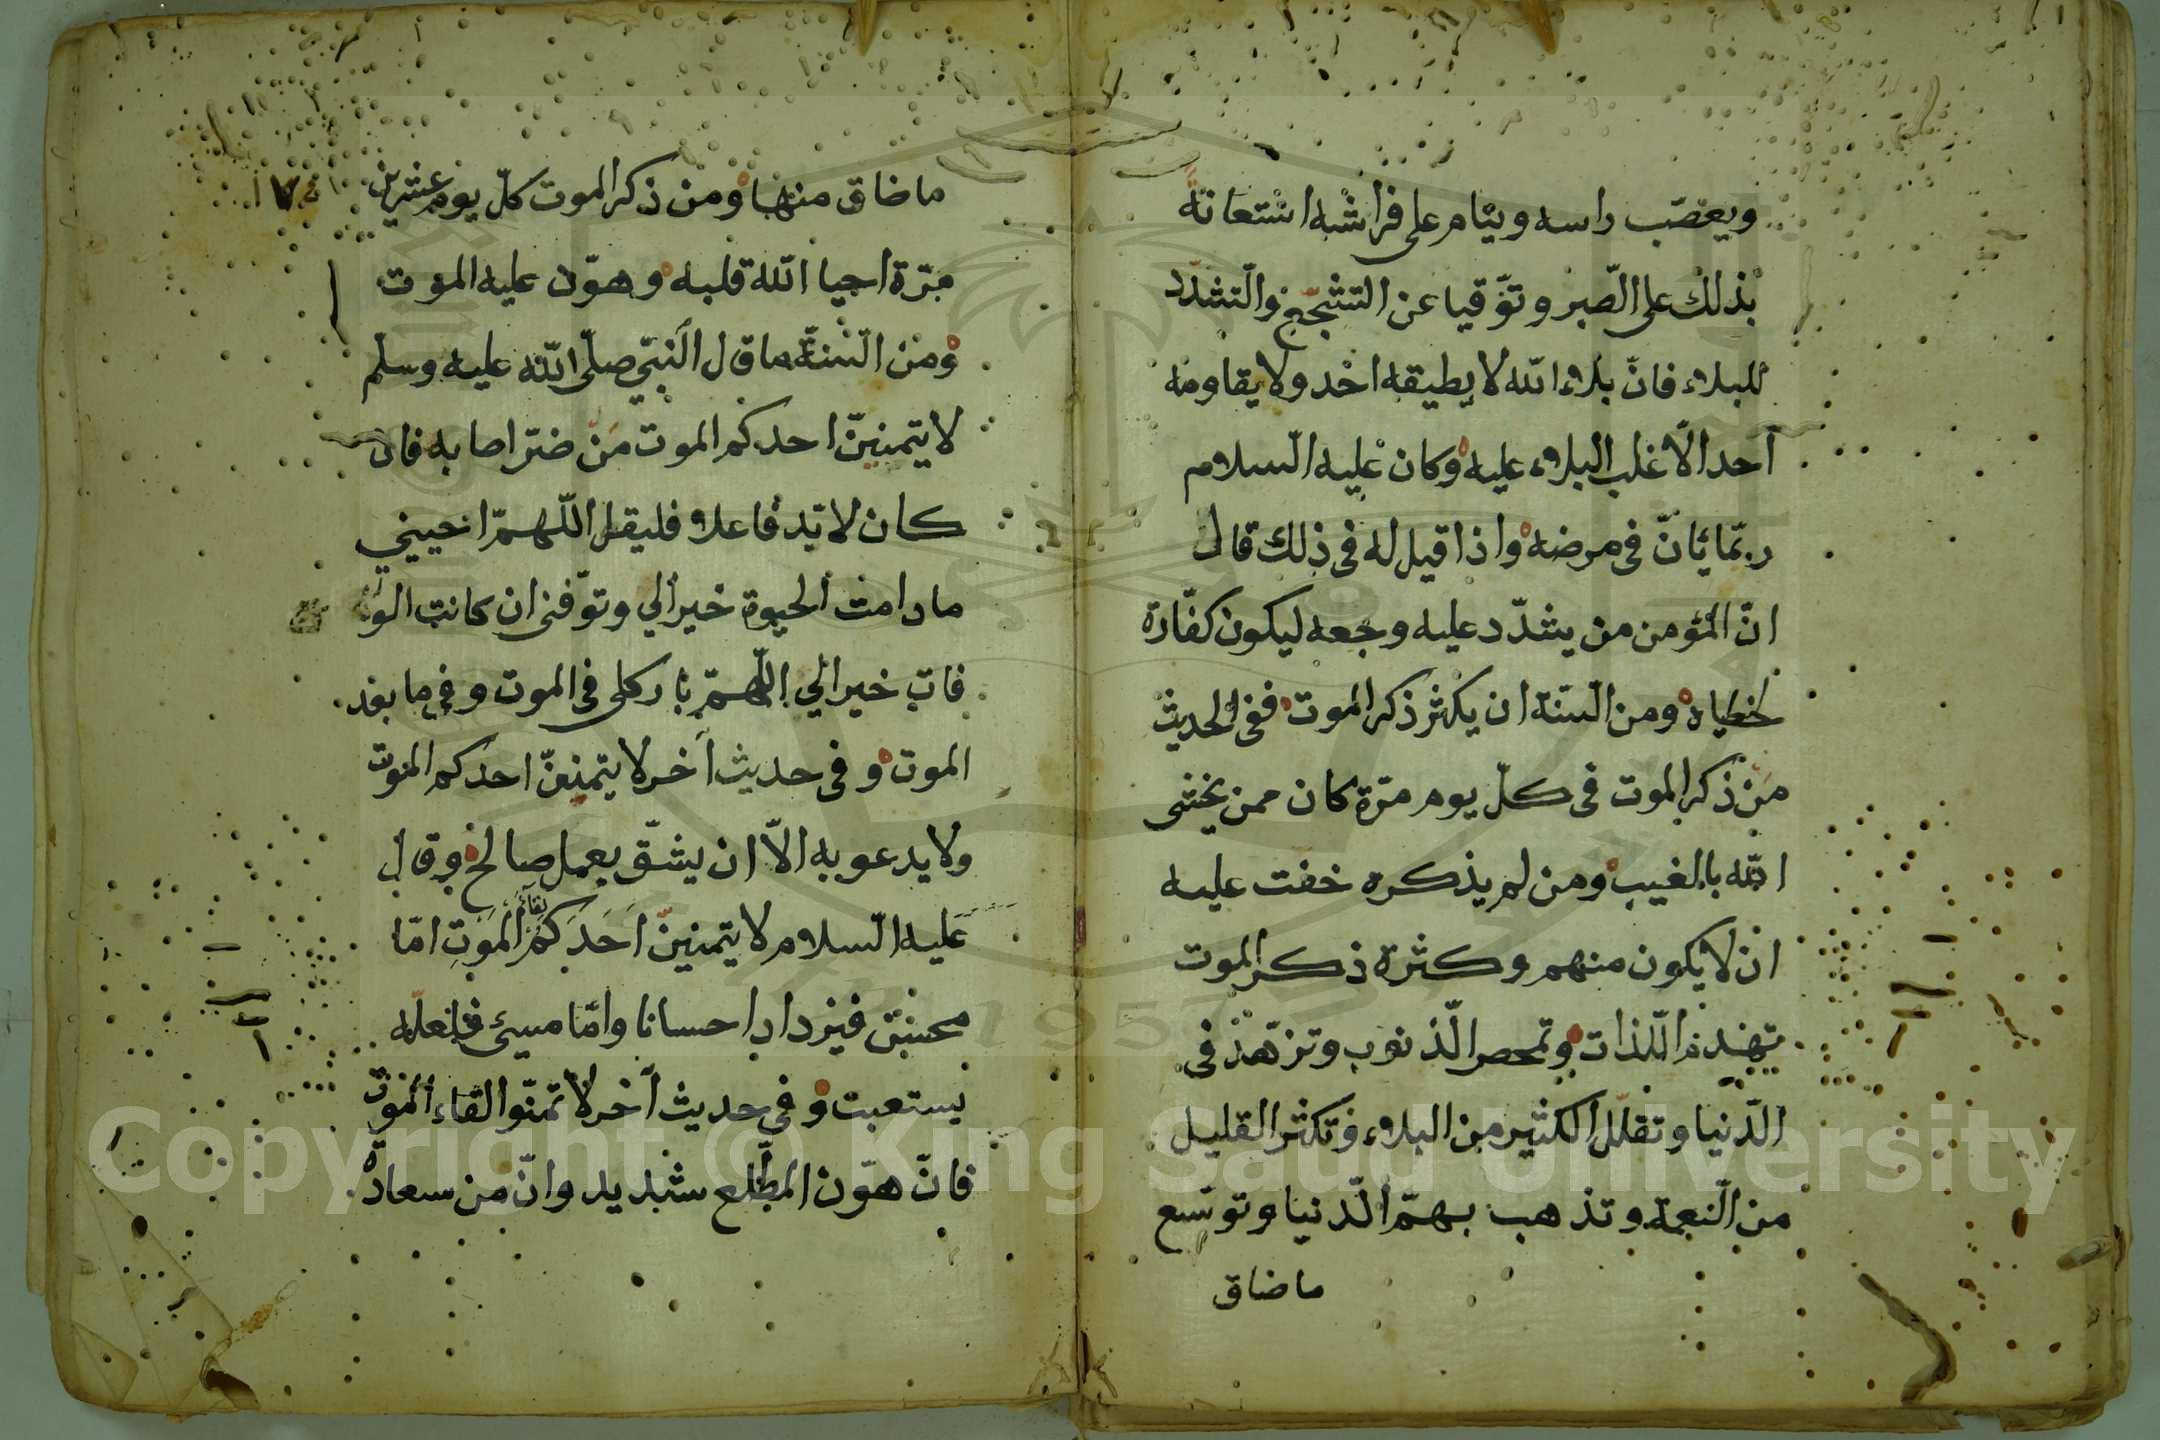 ويعصّب راسه وينام على فراشه استعانة
بذلك على الصّبر وتوّقيا عن التشجّع والتشدّد
للبلاء فانّ بلاء الله لا يطيقه احد ولا يقاومه
احد الّا غلب البلاء عليه وكان عليه السّلام
ربّما يانّ فى مرضه واذا قيل له فى ذلك قال
انّ المؤمن من يشدّد عليه وجعه ليكون كفّارة
لخطاياه ومن السّنة ان يكثر ذكر الموت ففى الحديث
من ذكر الموت فى كلّ يوم مرّة كان ممن يخشى
الله بالغيب ومن لم يذكره خفت عليه
ان لا يكون منهم وكثرة ذكر الموت
تهدم اللّذات وتمحص الذّنوب وتزهّد فى
الدّنيا وتقلّل الكثير من البلاء وتكثر القليل
من النّعمة وتذهب بهمّ الدّنيا وتوسّع
ما ضاق
١٧٤
ما ضاق منها ومن ذكر الموت كلّ يوم عشرين
مرّة احيا الله قلبه وهوّن عليه الموت
ومن السّنة ما قال النّبي صلّى الله عليه وسلم
لا يتمنينّ احدكم الموت من ضرّ اصابه فان
كان لا بّد فاعلا فليقل اللّهمّ احييني
ما دامت الحيوة خيرا لي وتوّفنى ان كانت الو
فات خيرا لي اللّهمّ بارك لى فى الموت وفى ما بعد
الموت وفى حديث آخر لا يتمنينّ احدكم الموت
ولا يدعو به الاّ ان يثق بعمل صالح وقال
عليه السّلام لا يتمنينّ احدكم لقاء الموت امّا
محسن فيزداد احسانا وامّا مسيئ فلعلّه
يستعتب وفي حديث آخر لا تمنّوا لقاء الموت
فانّ هوّن المطّلع شديد وانّ من سعادة
Copyright © King Saud University
1957